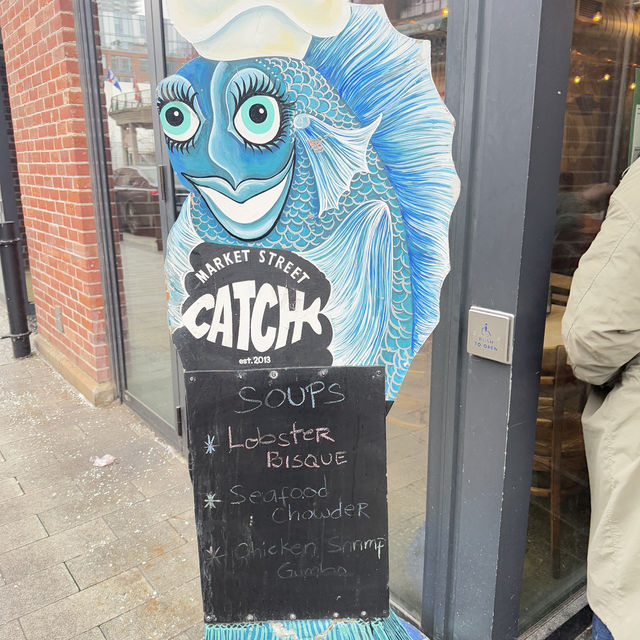 MARKET STREET
CATCH
est. 2013
SOUPS
* Lobster
BISQUE
* Seafood
Chowder
* Chicken Shrimp
Gumbo
PUSH
TO OPEN